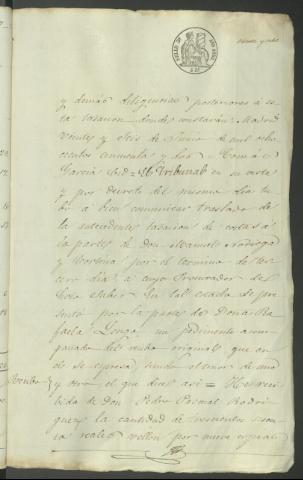 y demas diligencias posteriores a es
ta tasacion donde constarán. Madrid
veinte y seis de Junio de mil ocho
cientos cincuenta y dos = Tomás
Garcia = El Tribunal en su vista
y por decreto del mismo dia tu
bo a bien comunicar traslado de
la antecedente tasacion de costas a
la parte de Don Manuel Noriega
y Cortina por el termino de ter
cero dia, a cuyo Procurador se
hizo saber. En tal estado se pre
sentó por la parte de Doña Ra
faela un pedimento acom
pañado del recibo original que en
el se espresa, siendo el tenor de uno
Recibo y otro el que dice asi = He reci
bido de Don Pedro Pascual Rodri
guez la cantidad de trescientos
reales vellon por nueve